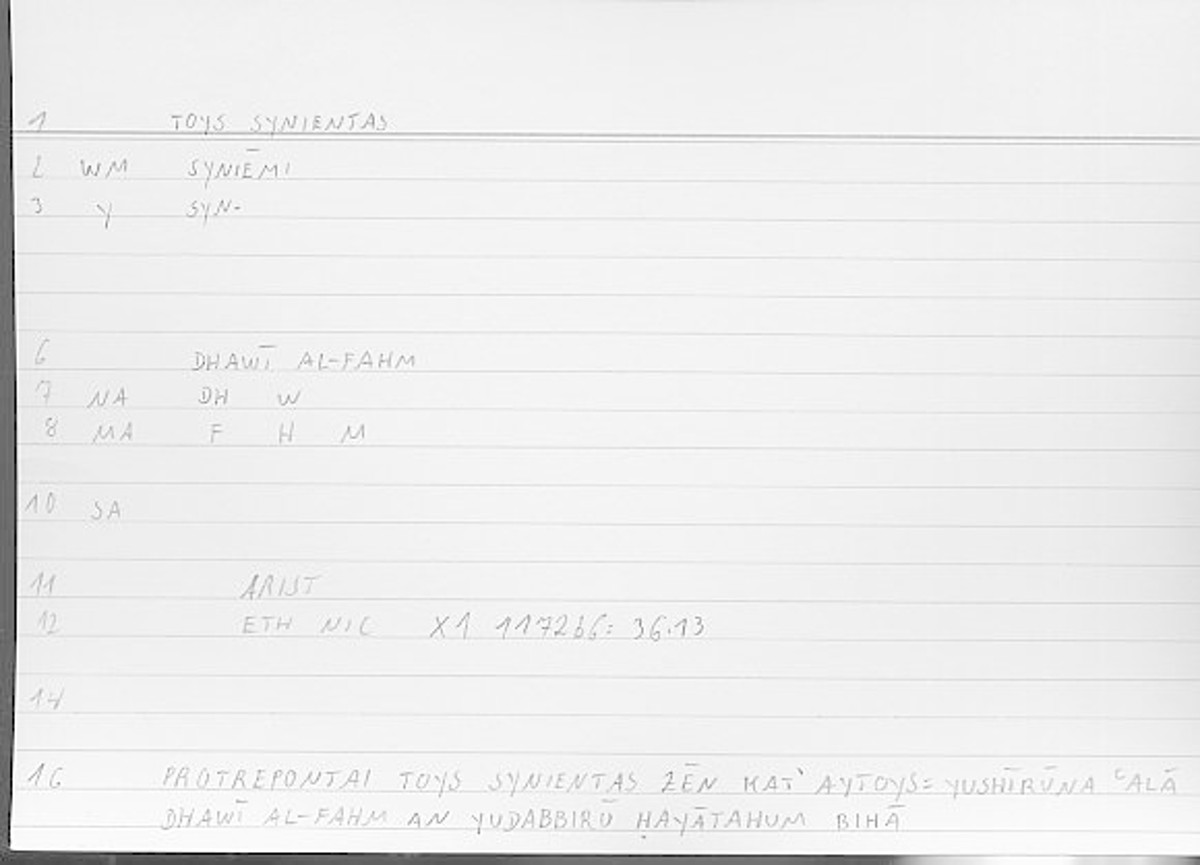 1 TOYS SYNIENTAS
2 WM SYNIĒMI
3 Y SYN-
6 DHAWĪ AL-FAHM
7 NA DH W
8 MA F H M
10 SA
11 ARIST
12 ETH NIC X1 1172b6: 36.13
14
16 PROTREPONTAI TOYS SYNIENTAS ZĒN KAT' AYTOYS= YUSHĪRŪNA ʿALĀ
DHAWĪ AL-FAHM AN YUDABBIRŪ ḤAYĀTAHUM BIHĀ